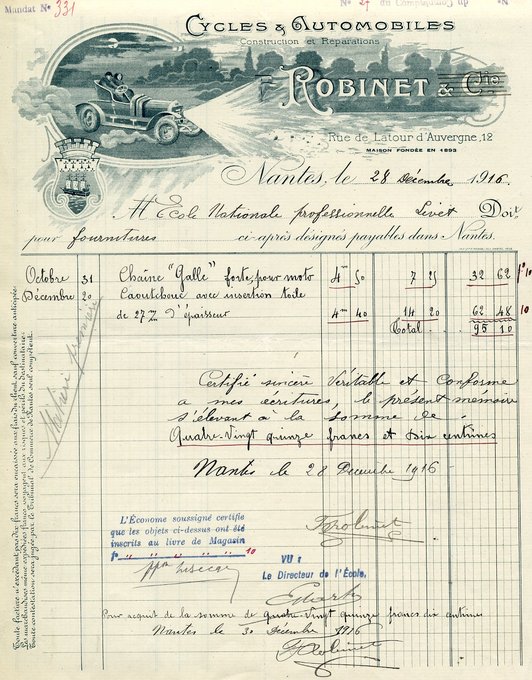 Mandat Nº 331
CYCLES & AUTOMOBILES
Construction et Réparations
ROBINET & Cie
Rue de Latour d'Auvergne, 12
MAISON FONDÉE EN 1893
Nantes, le 28 Décembre 1916
M École Nationale professionnelle Livet Doit
pour fournitures ci-après désignés payables dans Nantes.
Octobre 31 Chaîne "Galle" forte, pour moto 4m 50 7 25 32 62 10
Décembre 20 Caoutchouc avec insertion toile
de 27 d'épaisseur 4m 40 14 20 62 48 10
Total 95 10
Matière première
Certifié sincère Véritable et Conforme
a mes écritures, le présent mémoire
s'élevant à la somme de
Quatre-Vingt quinze francs et dix centimes
Nantes le 28 Décembre 1916
Robinet
L'Économe soussigné certifie
que les objets ci-dessus ont été
inscrits au livre de Magasin
fº 10
VU :
Le Directeur de l'École,
Pour acquit de la somme de quatre-Vingt quinze francs dix centimes
Nantes le 30 Décembre 1916
Robinet
Toute contestation sera jugée par le Tribunal de Commerce de Nantes seul compétent.